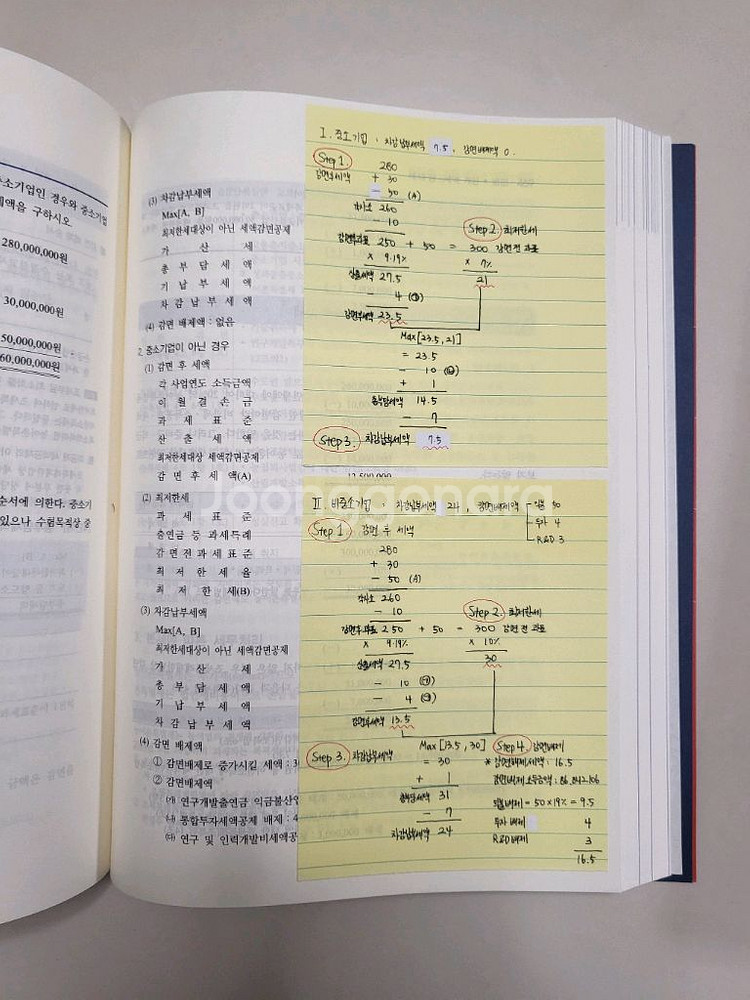 소기업인 경우와 중소기업
세액을 구하시오
280,000,000원
30,000,000원
50,000,000원
60,000,000원
순서에 의한다. 중소기
있으나 수험목적상 중
(3) 차감납부세액
Max[A, B]
최저한세대상이 아닌 세액감면공제
가 산 세
총 부 담 세 액
기 납 부 세 액
차 감 납 부 세 액
(4) 감면 배제액 : 없음
2. 중소기업이 아닌 경우
(1) 감면 후 세액
각 사업연도 소득금액
이 월 결 손 금
과 세 표 준
산 출 세 액
최저한세대상 세액감면공제
감 면 후 세 액(A)
(2) 최저한세
과 세 표 준
출연금 등 과세특례
감 면 전 과 세 표 준
최 저 한 세 율
최 저 한 세(B)
(3) 차감납부세액
Max[A, B]
최저한세대상이 아닌 세액감면공제
가 산 세
총 부 담 세 액
기 납 부 세 액
차 감 납 부 세 액
(4) 감면 배제액
① 감면배제로 증가시킬 세액 : 3
② 감면배제액
㈎ 연구개발출연금 익금불산입
㈏ 통합투자세액공제 배제 : 4
㈐ 연구 및 인력개발비세액공
I. 중소기업 : 차감납부세액 7.5, 감면배제액 0.
Step 1
280
감면후세액 + 30
- 50 (A)
각사소 260
- 10
감면후과표 250 + 50 = 300 감면전 과표
Step 2. 최저한세
× 9.19% × 7%
산출세액 27.5 21
- 4
감면후세액 23.5
Max[23.5, 21]
= 23.5
- 10
+ 1
총부담세액 14.5
- 7
Step 3. 차감납부세액 7.5
Joonggonara
II. 비중소기업 차감납부세액 24, 감면배제액 익불 50
투자 4
R&D 3
Step 1 감면 후 세액
280
+ 30
- 50 (A)
각사소 260
- 10
Step 2. 최저한세
감면후과표 250 + 50 = 300 감면전 과표
× 9.19% × 10%
산출세액 27.5 30
- 10
- 4
감면후세액 13.5
Step 3. 차감납부세액 Max[13.5, 30]
= 30
+ 1
총부담세액 31
- 7
차감납부세액 24
Step 4. 감면배제
* 감면배제세액 : 16.5
감면배제 소득금액 : 86,842,106
익불배제 = 50×19% = 9.5
투자 배제 4
R&D배제 3
16.5